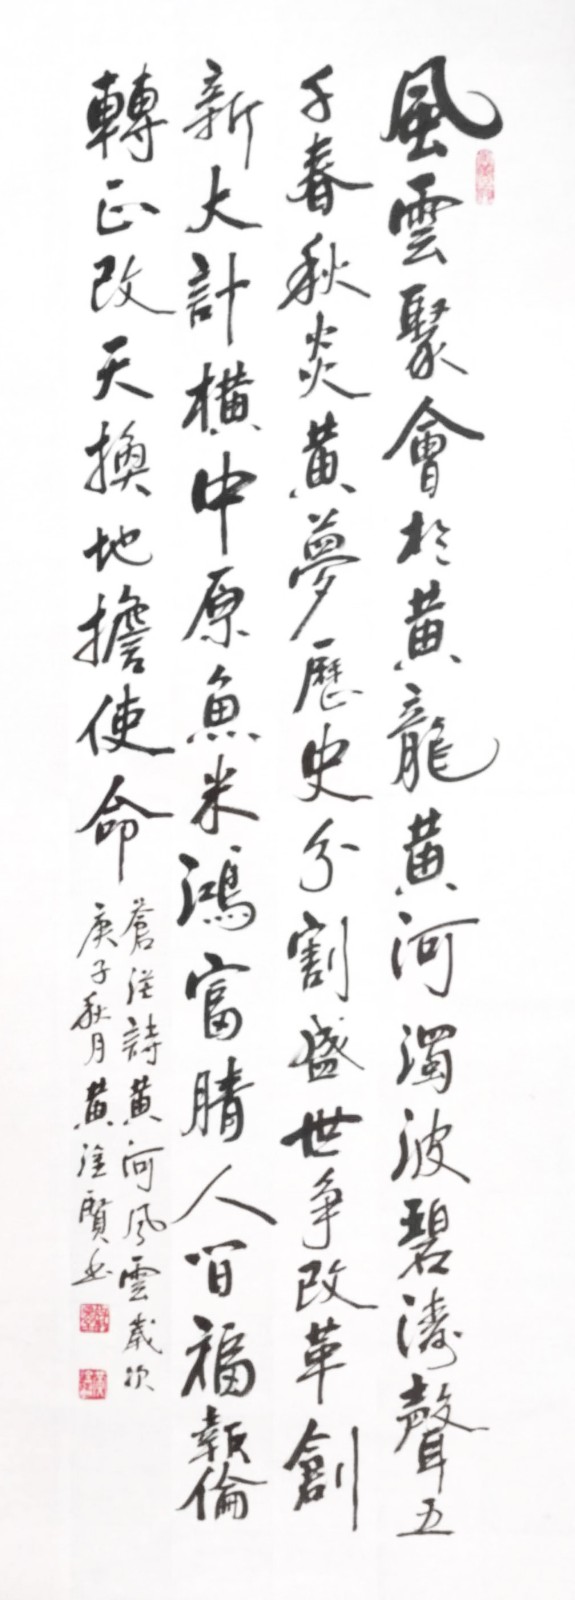 風雲聚會於黃龍黃河濁波碧濤聲五
千春秋炎黃夢歷史分割盛世爭改革創
新大計橫中原魚米鴻富晴人間福報倫
轉正改天換地擔使命
蒼洋詩黃河風雲歲次
庚子秋月黃 賢書